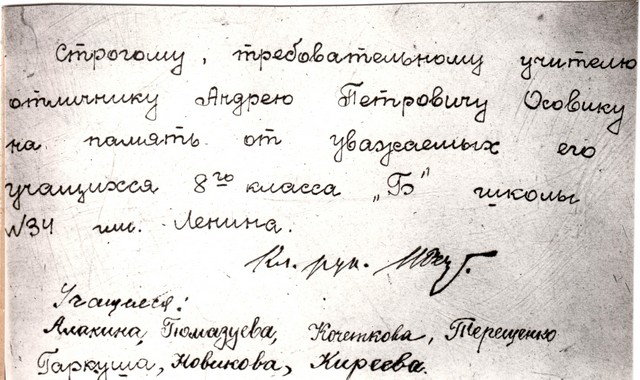 Строгому, требовательному учителю
отличнику Андрею Петровичу Осовику
на память от уважаемых его
учащихся 8го класса „Б" школы
№34 им. Ленина.
Кл. рук.
Учащиеся:
Алахина, Гюмазуева, Кочеткова, Терещенко
Гаркуша, Новикова, Киреева.